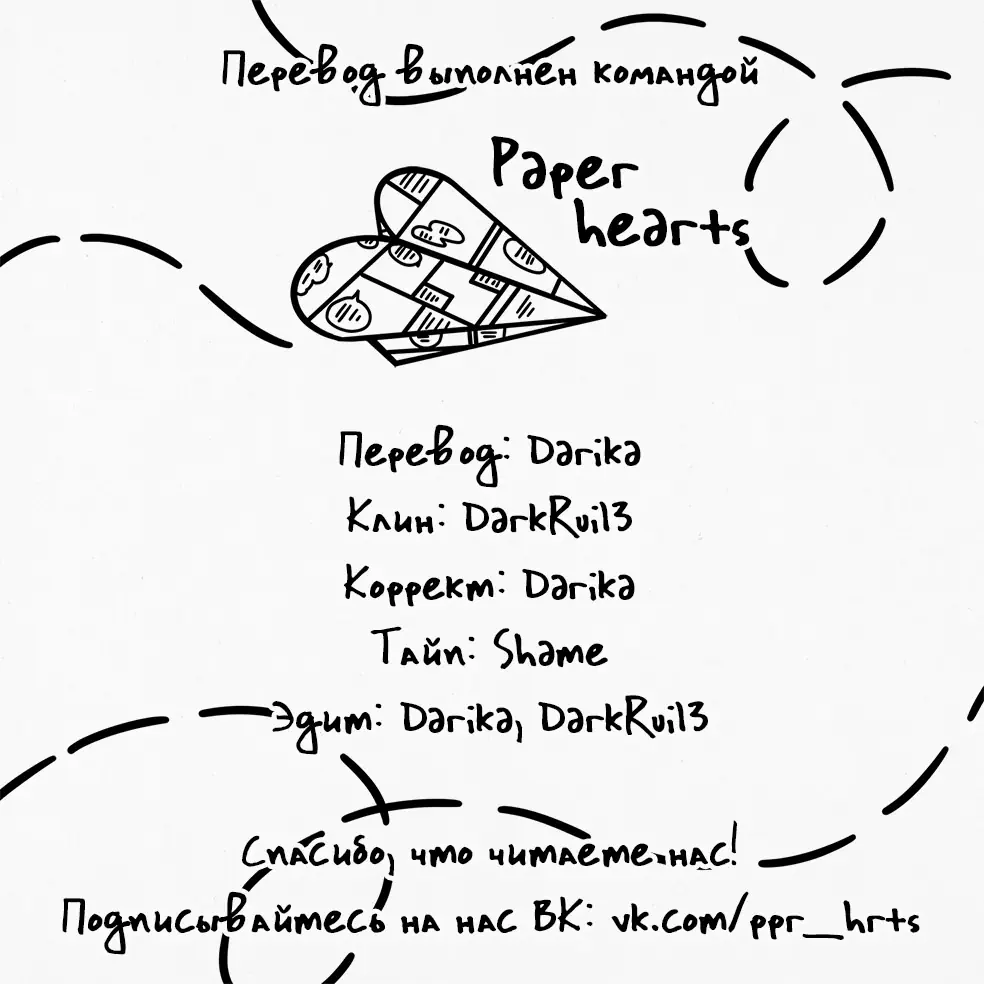 Перевод выполнен командой
Paper
hearts
Перевод: Darika
Клин: DarkRui13
Коррект: Darika
Тайп: Shame
Эдит: Darika, DarkRui13
Спасибо, что читаете нас!
Подписывайтесь на нас ВК: vk.com/ppr__hrts